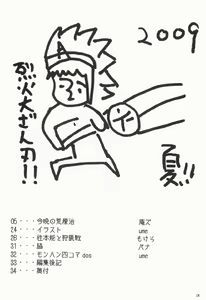 2009
烈火大ざん刃!!
夏!!
05・・・今晩の荒療治 庵ズ
24・・・イラスト ume
26・・・往本能と狩猟戦 もけら
31・・・脇 バナ
32・・・モンハン四コマdos ume
33・・・編集後記
34・・・奥付